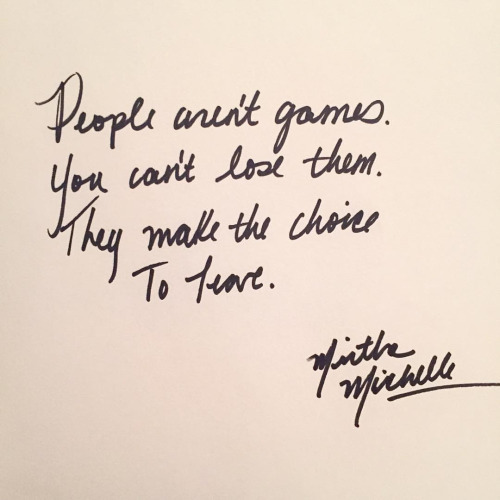 People aren't games.
You can't lose them.
They make the choice
To leave.
Mirtha
Michelle